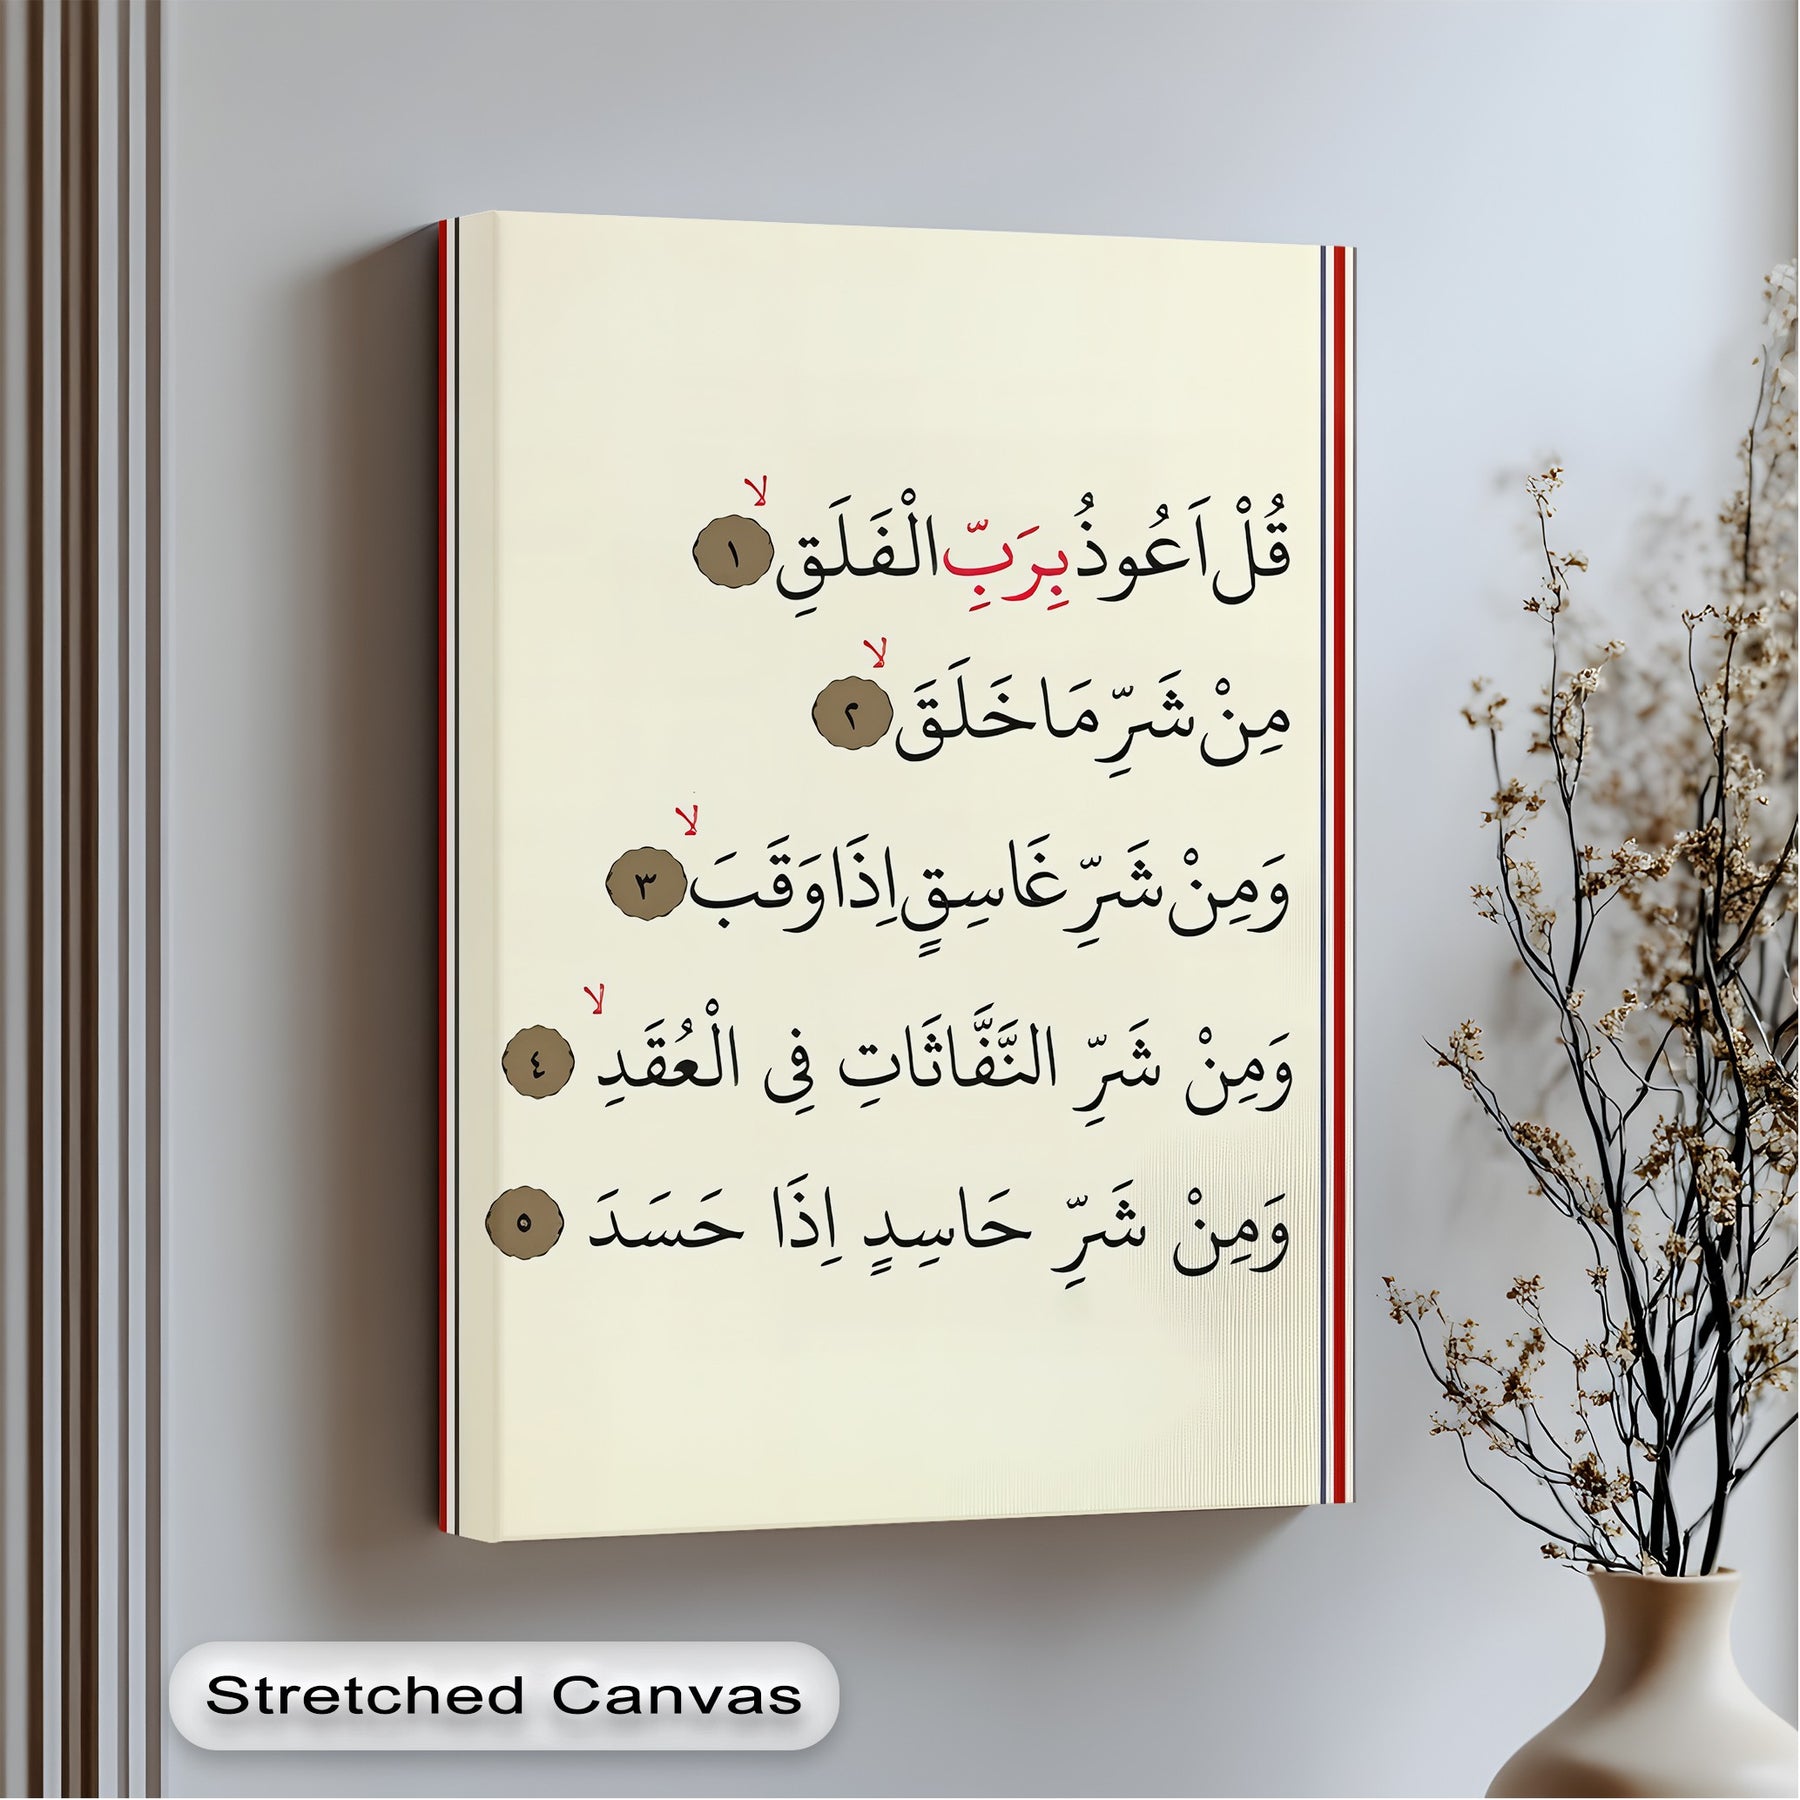 لا
قُلْ اَعُوذُ بِرَبِّ الْفَلَقِ ١
لا
مِنْ شَرِّ مَا خَلَقَ ٢
لا
وَمِنْ شَرِّ غَاسِقٍ اِذَا وَقَبَ ٣
لا
وَمِنْ شَرِّ النَّفَّاثَاتِ فِى الْعُقَدِ ٤
وَمِنْ شَرِّ حَاسِدٍ اِذَا حَسَدَ ٥
Stretched Canvas